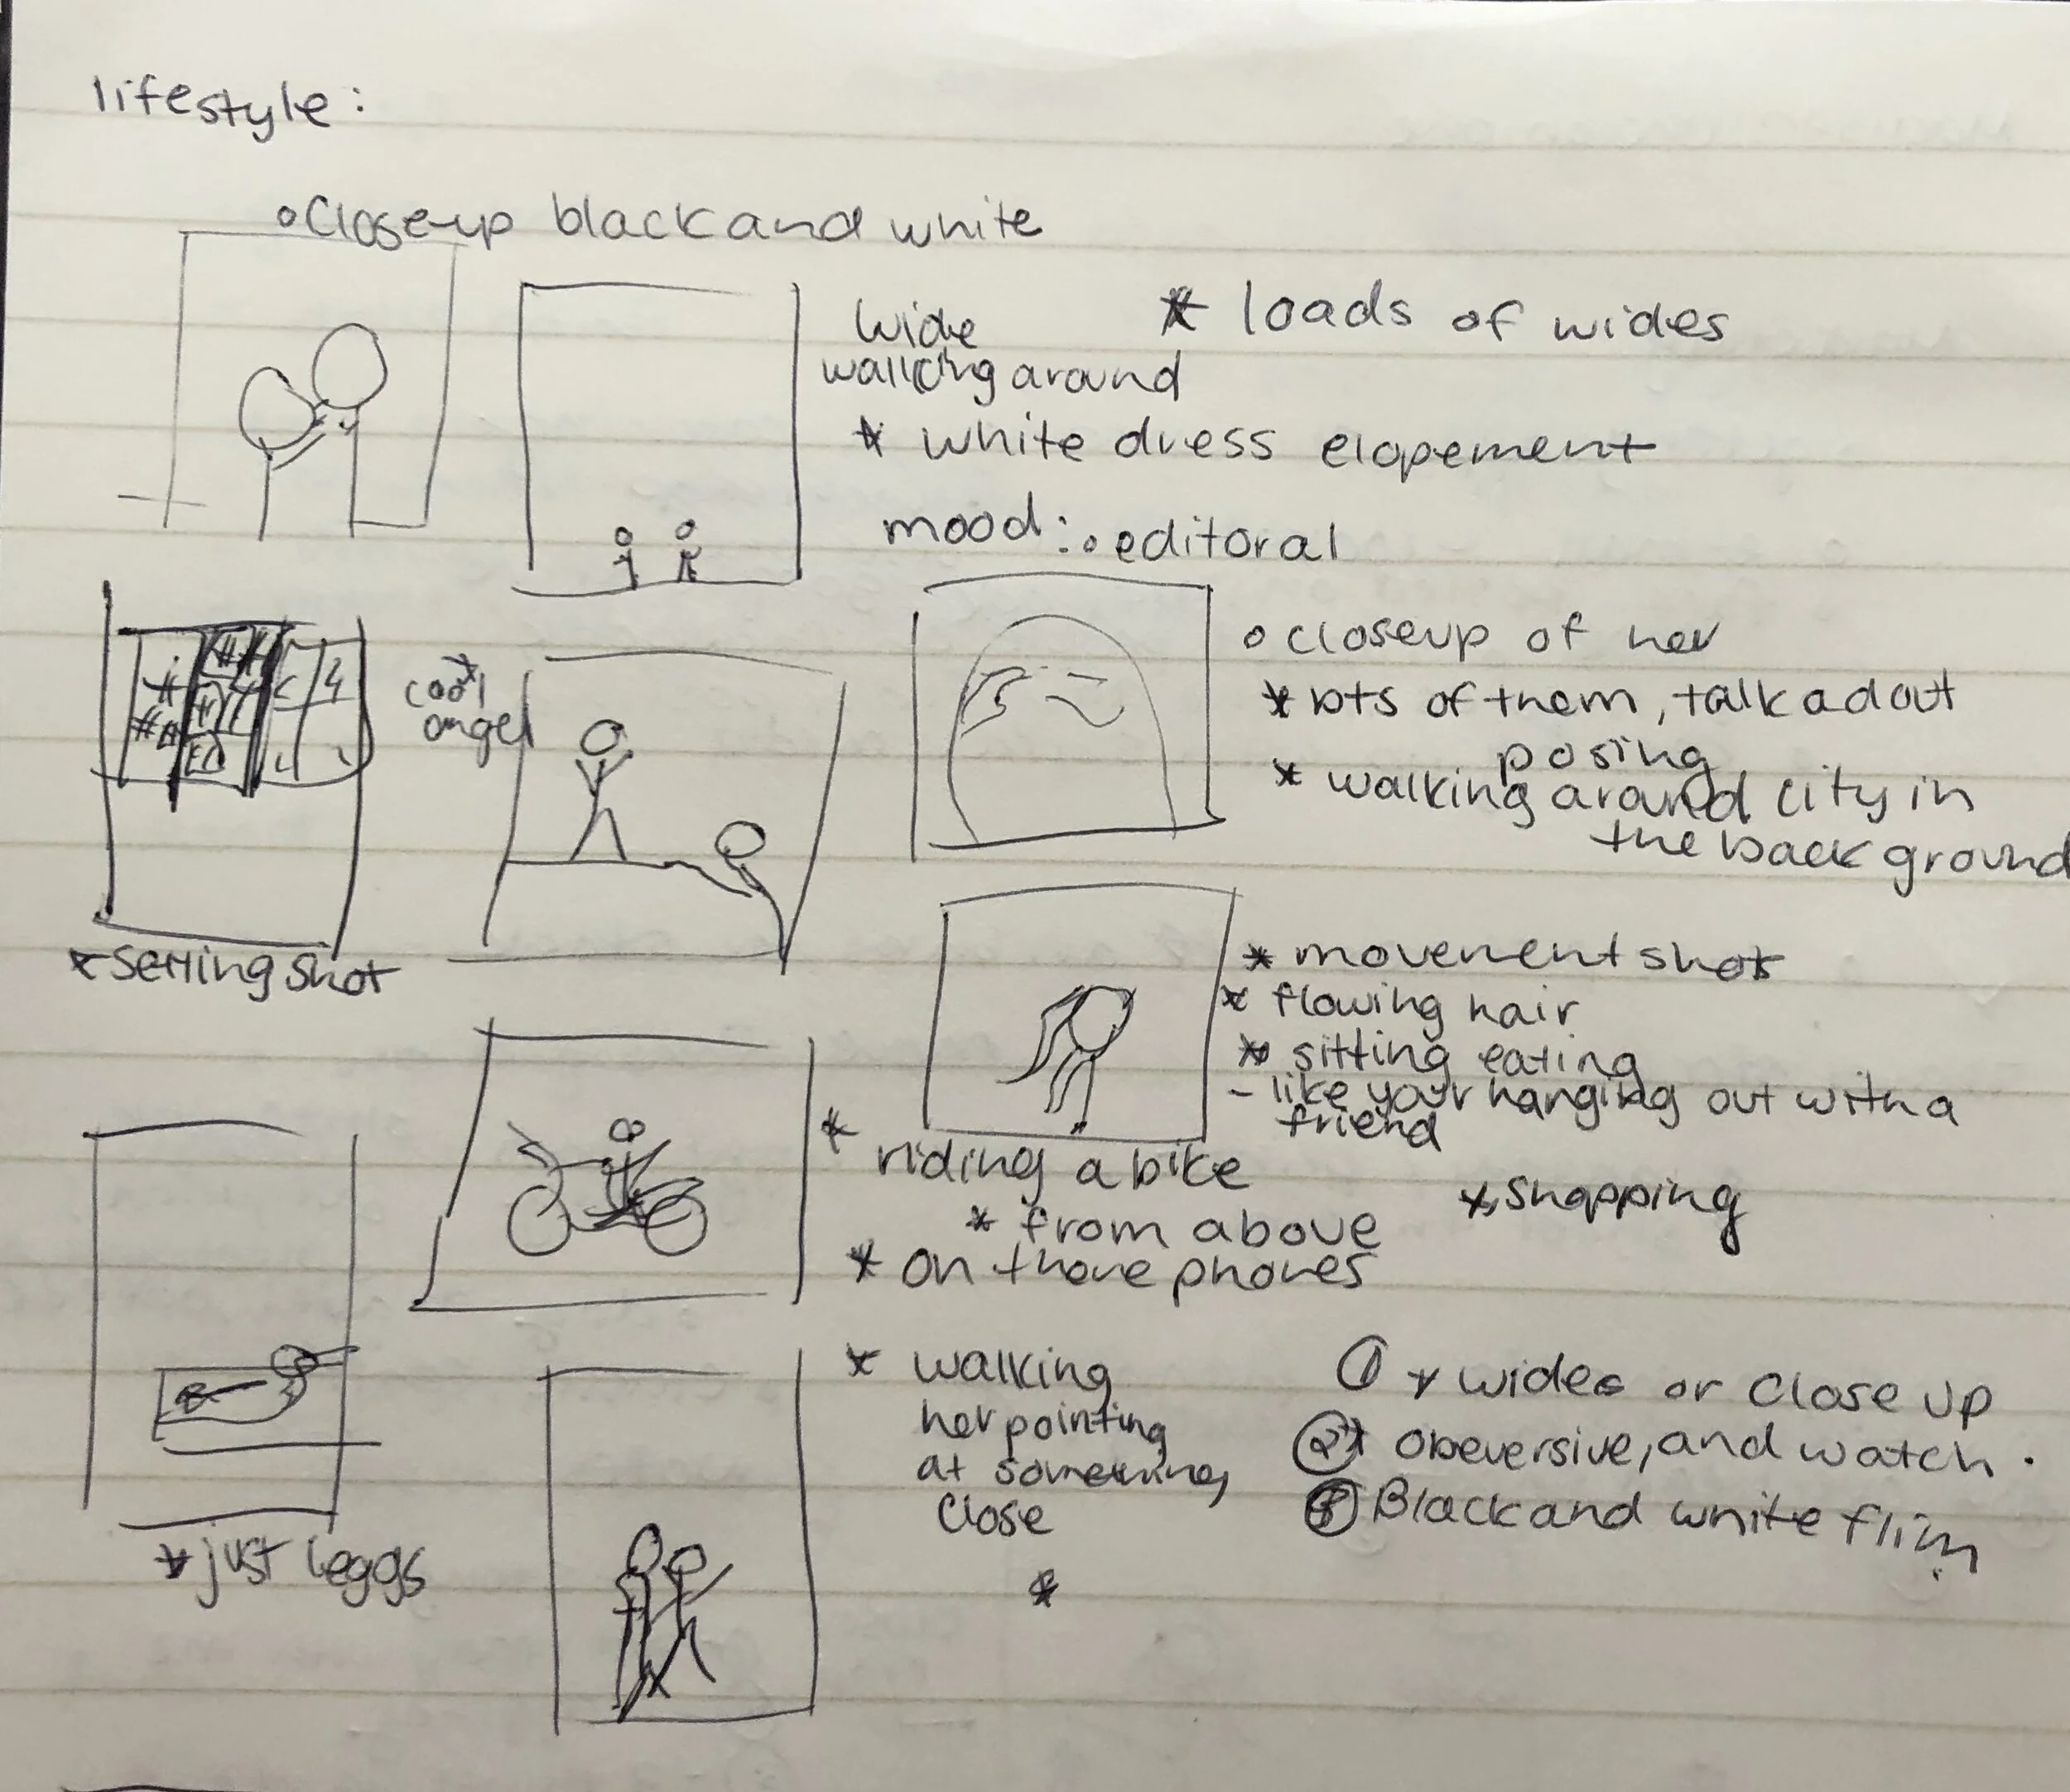 lifestyle:
∘Close-up black and white
Wide
* loads of wides
walking around
* white dress elopement
mood:∘editoral
∘ closeup of her
* lots of them, talk adout
posing
* walking around city in
the back ground
cool
angel
* setting shot
* movement shots
* flowing hair
* sitting eating
- like your hanging out with a
friend
* riding a bike
* from above
* on there phones
* shopping
* just leggs
* walking
her pointing
at something
Close
*
① * wides or close up
②* obeversive, and watch.
Black and white flim